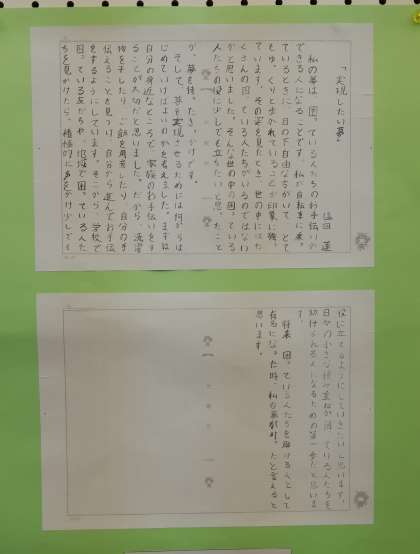 「実現したい夢」
塩田 蓮
私の夢は、困っている人たちのお手伝いが
できる人になることです。私が自転車に乗っ
ているときに、目の不自由な方がいて、とて
もゆっくりと歩かれていることが印象に残っ
ています。その姿を見たとき、世の中にはた
くさんの困っている人たちがいるのではない
かと思いました。そんな世の中の困っている
人たちの役に少しでも立ちたいと思ったこと
が、夢を持ったきっかけです。
そして、夢を実現させるためには何からは
じめていけばよいのかを考えました。まずは
自分の身近なところで、家族のお手伝いをす
ることが大切だと思いました。だから、洗濯
物を干したり、ご飯を用意したり、自分のでき
ることを見つけ、自分から進んでお手伝い
をするようにしています。そこから、学校で
困っている友だちや、地域で困っている人た
ちを見かけたら、積極的に声をかけ少しでも
役に立てるようにしていきたいと思います。
日々の小さな積み重ねが困っている人たちを
助けられる人になるための第一歩だと思いま
す。
将来、困っている人たちを助ける人として
有名になった時、私の夢が叶ったと言えると
思います。